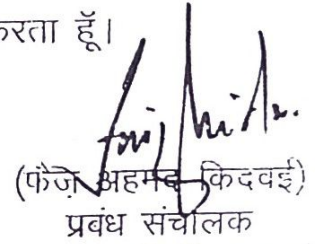 करता हूँ।
(फैज़े अहमद किदवई)
प्रबंध संचालक